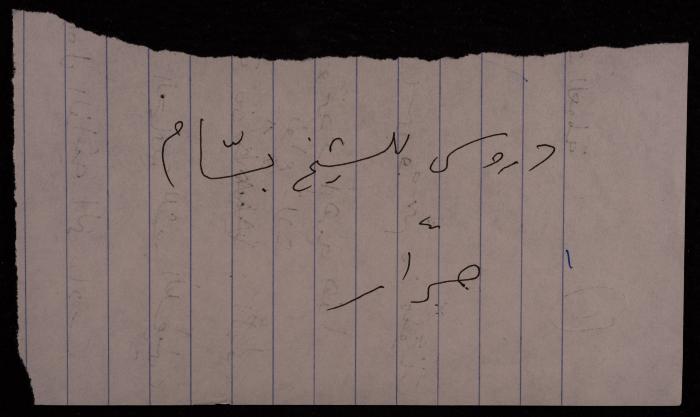 دروس للشيخ بسّام
جرّار